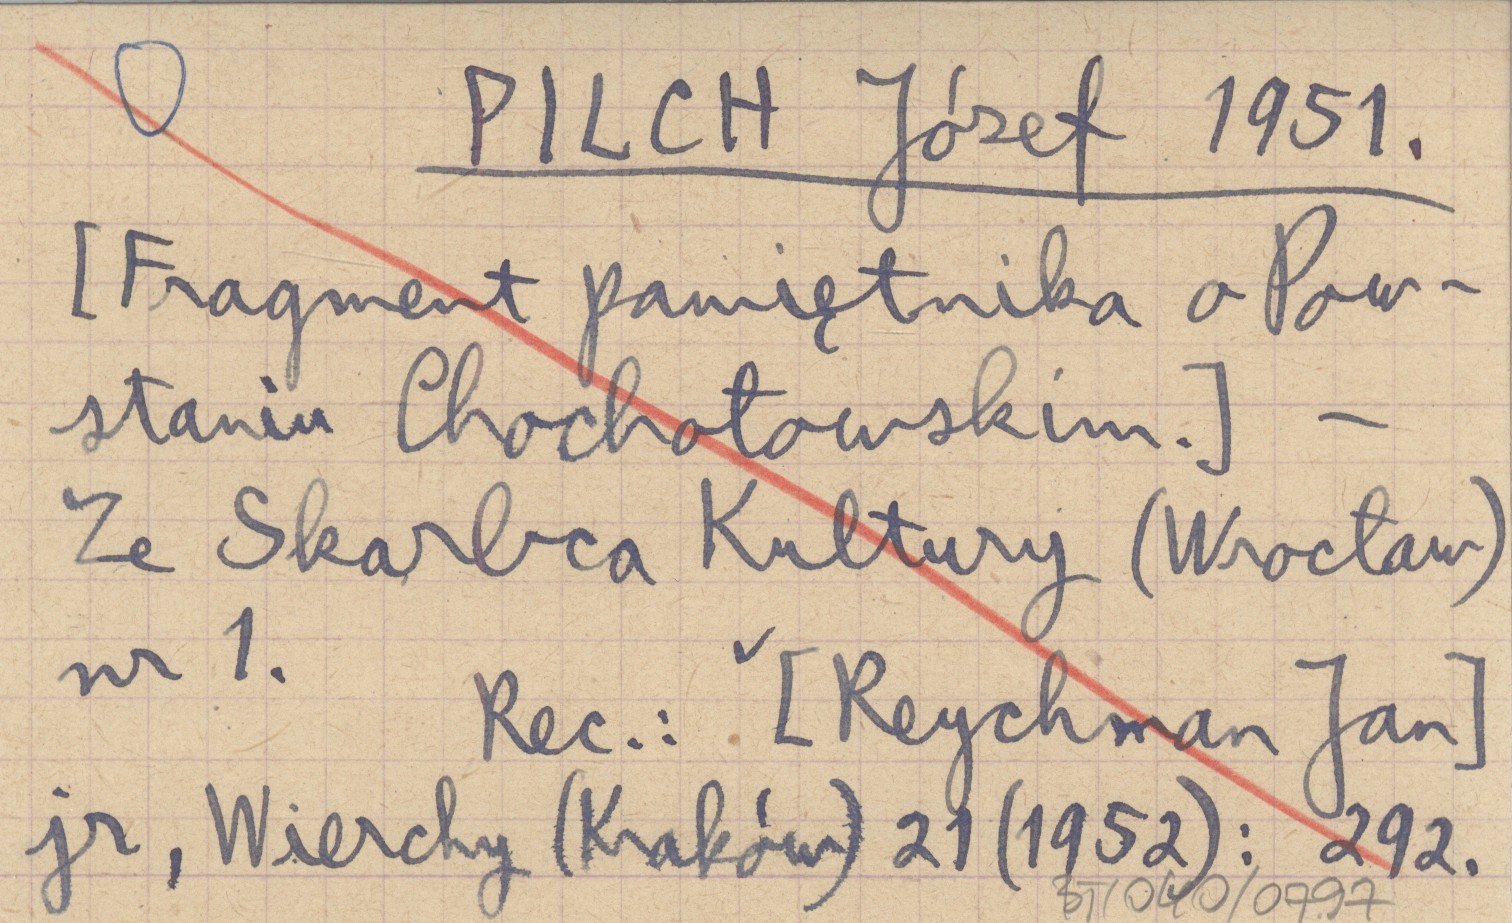 PILCH Józef 1951.
[Fragment pamiętnika o Pow-
staniu Chochołowskim.] –
Ze Skarbca Kultury (Wrocław)
nr 1.
Rec.: ✓[Reychman Jan]
jr, Wierchy (Kraków) 21 (1952): 292.
BT/040/0797